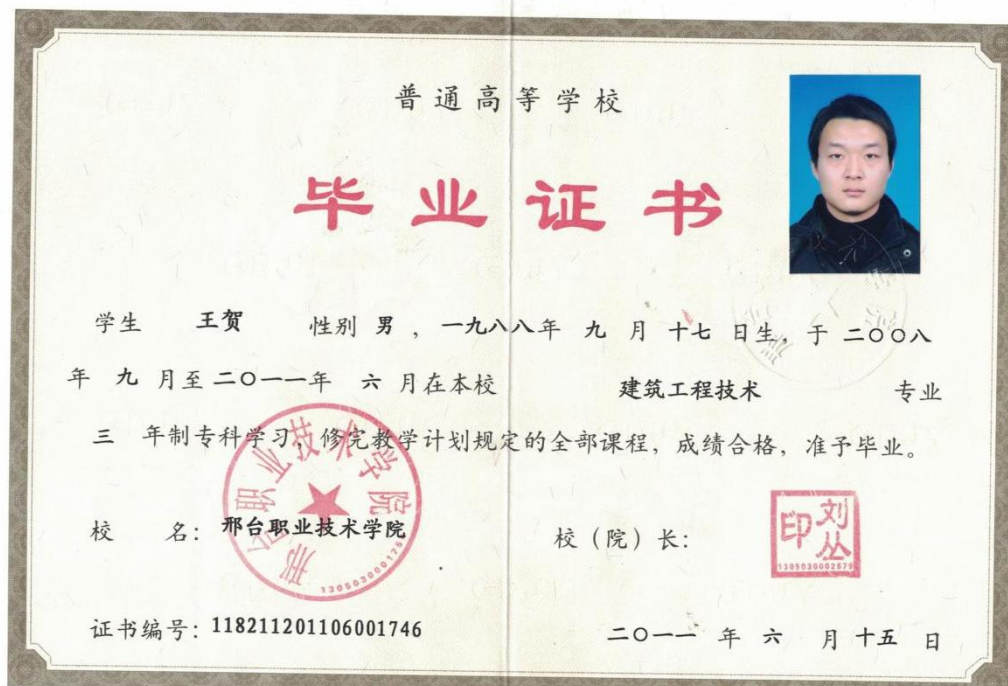 普通高等学校
毕业证书
学生 王贺 性别 男 ，一九八八年 九 月 十七 日生，于 二〇〇八
年 九 月至 二〇一一年 六 月在本校 建筑工程技术 专业
三 年制专科学习，修完教学计划规定的全部课程，成绩合格，准予毕业。
邢台职业技术学院
1305030001751
校 名：邢台职业技术学院 校（院）长：
刘丛印
1305030002679
证书编号：118211201106001746 二〇一一 年 六 月 十五 日